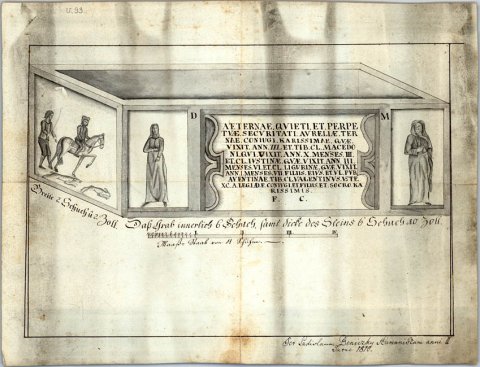 V. 93.
D M
AETERNAE, QVIETI, ET, PERPE
TVÆ, SECVRITATI, AVRELIÆ, TER
NÆ, CONIVGI, KARISSIMÆ, QVÆ
VIXIT, ANN, III, ET, TIB, CL, MACEDO
NI, QVI, VIXIT, ANN, X, MENSES, III,
ET, CL, IVSTINÆ, QVÆ, VIXIT, ANN, III,
MENSES, VI, ET, CL, LIGVRINÆ, QVÆ, VIXIT,
ANN, I, MENSES, VII, FILIIS, EIVS, ET, VL, PVL,
AVENTINAE, TIB, CL, VALENTINVS,
XC, A, LEG, CONIVGI, ET, FILIIS, ET, SOCRO, KA
RISSIMIS.
F. C.
Breite 2 Schuch 2 Zoll.
Daß Grab innerlich 6 Schuch, samt dicke des Steins 6 Schuch 10 Zoll.
Maaß Staab von
Per Ladislaum Beniczky Humanistam anni
1810.